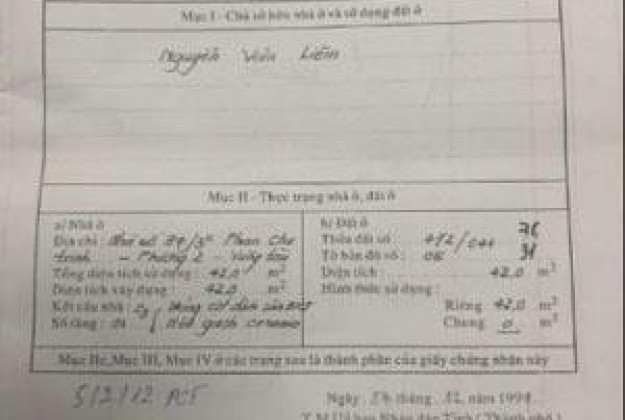 Mục I - Chủ sở hữu nhà ở và sử dụng đất ở
Nguyễn Văn Liêm
Mục II - Thực trạng nhà ở, đất ở
a/ Nhà ở
Địa chỉ : Nhà số 59/3 Phan Chu
trinh - Phường 2 - Vũng tàu
Tổng diện tích sử dụng : 42,0 m²
Diện tích xây dựng : 42,0 m²
Kết cấu nhà :
Số tầng : 01 nền gạch ceramic
b/ Đất ở
Thửa đất số : 472/044
Tờ bản đồ số : 06
Diện tích 42,0 m²
Hình thức sử dụng :
Riêng 42,0 m²
Chung 0 m²
Mục IIc, Mục III, Mục IV ở các trang sau là thành phần của giấy chứng nhận này
5/2/12
Ngày tháng 12, năm 1994
T.M Uỷ ban Nhân dân Tỉnh (Thành phố)